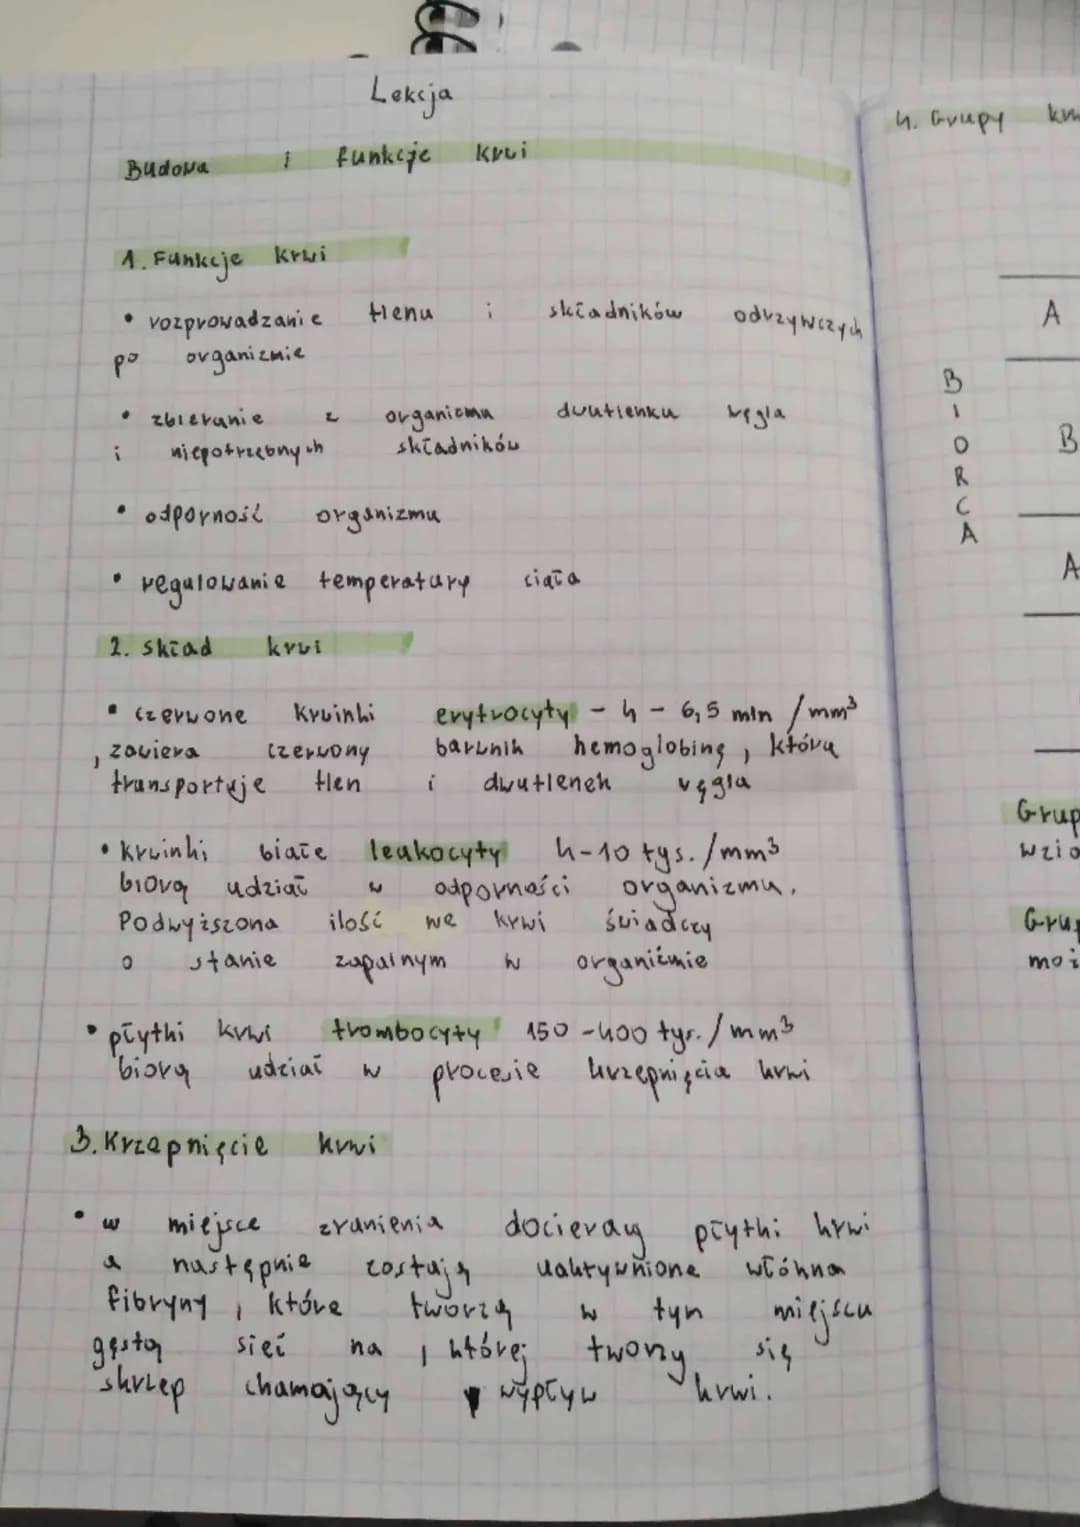 Lekcja
Budowa i funkcje krwi
1. Funkcje krwi
• rozprowadzanie tlenu i składników odrzywczych
po organizmie
• zbieranie z organizmu dwutlenku węgla
i niepotrzebnych składników
• odporność organizmu
• regulowanie temperatury ciała
2. Skład krwi
• czerwone krwinki erytrocyty - 4 - 6,5 mln /mm³
, zawiera czerwony barwnik hemoglobinę, którą
transportuje tlen i dwutlenek węgla
• krwinki białe leukocyty 4-10 tys. /mm³
biorą udział w odporności organizmu.
Podwyższona ilość we krwi świadczy
o stanie zapalnym w organiźmie
• płytki krwi trombocyty 150 -400 tys. /mm³
biorą udział w procesie krzepnięcia krwi
3. Krzepnięcie krwi
• w miejsce zranienia docieraą płytki krwi
a następnie zostają uaktywnione włókna
fibryny, które tworzą w tyn miejscu
gęstą sieć na, której tworzy się
skrzep chamający wypływ krwi.
4. Grupy
BIORCA
A
B
A
Grup
Grup